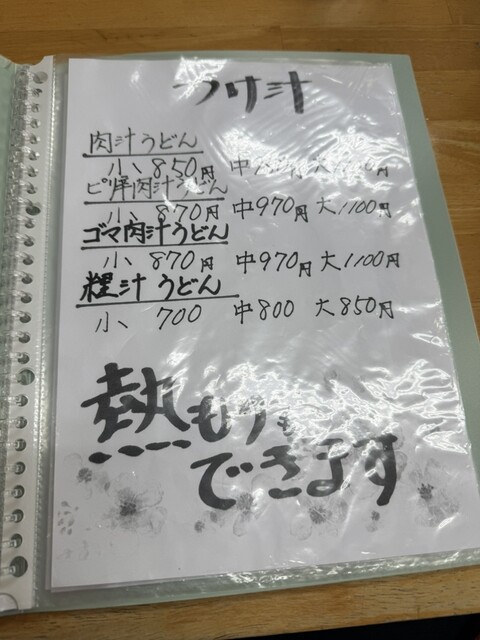 つけ汁
肉汁うどん
小 850円 中 大
肉汁うどん
小 870円 中970円 大1100円
ゴマ肉汁うどん
小 870円 中970円 大1100円
糧汁うどん
小 700 中800 大850円
熱もりも
できます